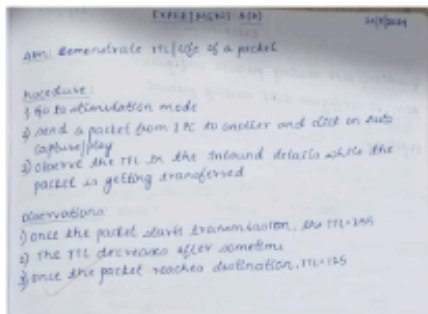 EXPERIMENT
Aim: Demonstrate TTL/Life of a packet
Procedure:
1) Go to stimulation mode
2) send a packet from 1 PC to another and click on auto
capture/play
3) observe the TTL in the Inbound details while the
packet is getting transferred
Observations:
1) Once the packet starts transmission, the TTL=255
2) The TTL decreases after sometime
3) once the packet reaches destination, TTL=125